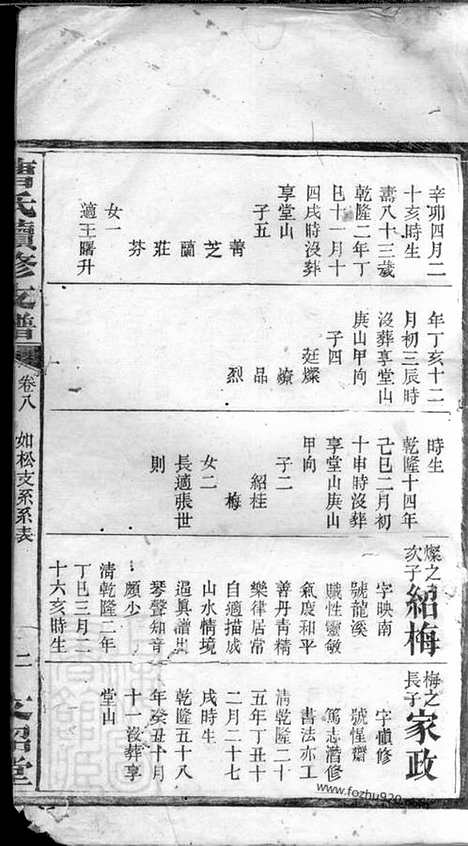 辛卯四月二
十亥時生
壽八十三歲
乾隆二年丁
巳十一月十
四戌時沒葬
享堂山
子五
菁
芝
蘭
莊
芬
女一
適王曙升
年丁亥十二
月初三辰時
沒葬享堂山
庚山甲向
子四
廷燦
燎
品
烈
時生
乾隆十四年
己巳二月初
十申時沒葬
享堂山庚山
甲向
子二
紹桂
梅
女二
長適張世
則
燦之
次子
紹梅
字映南
號龍溪
賦性靈敏
氣度和平
善丹青精
樂律居常
自適描成
山水情境
逼真譜出
琴聲知音
頗少
清乾隆二年
丁巳三月二
十六亥時生
梅之
長子
家政
字慎修
號惺齋
篤志潛修
書法亦工
清乾隆二十
五年丁丑十
二月二十七
戌時生
乾隆五十八
年癸丑十月
十一沒葬享
堂山
曹氏續修支譜
卷八
如松支系系表
二
文紹堂
www.fozhu920.com